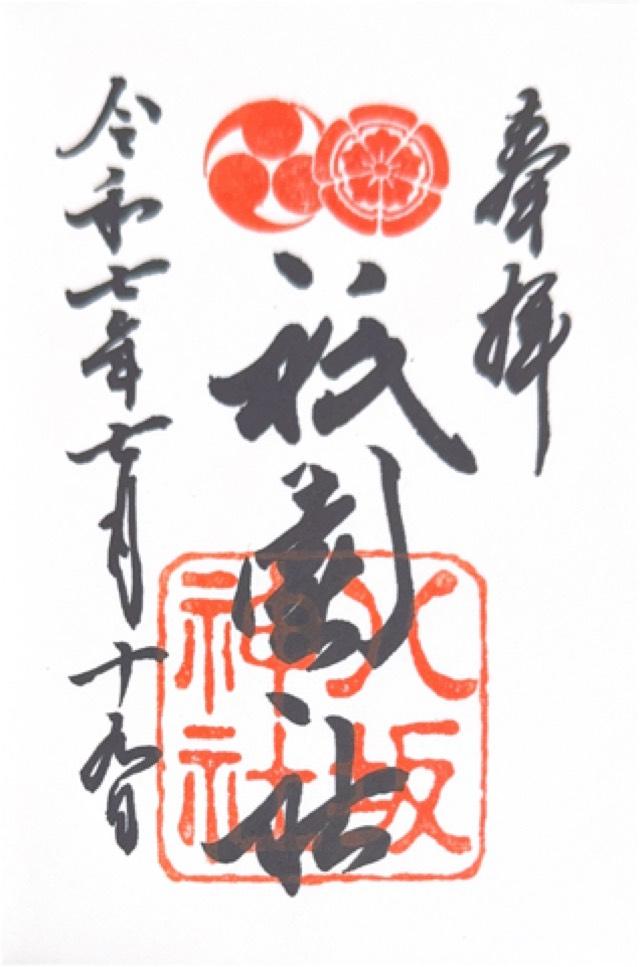 奉拝
祇園社
八坂
神社
令和七年七月十九日